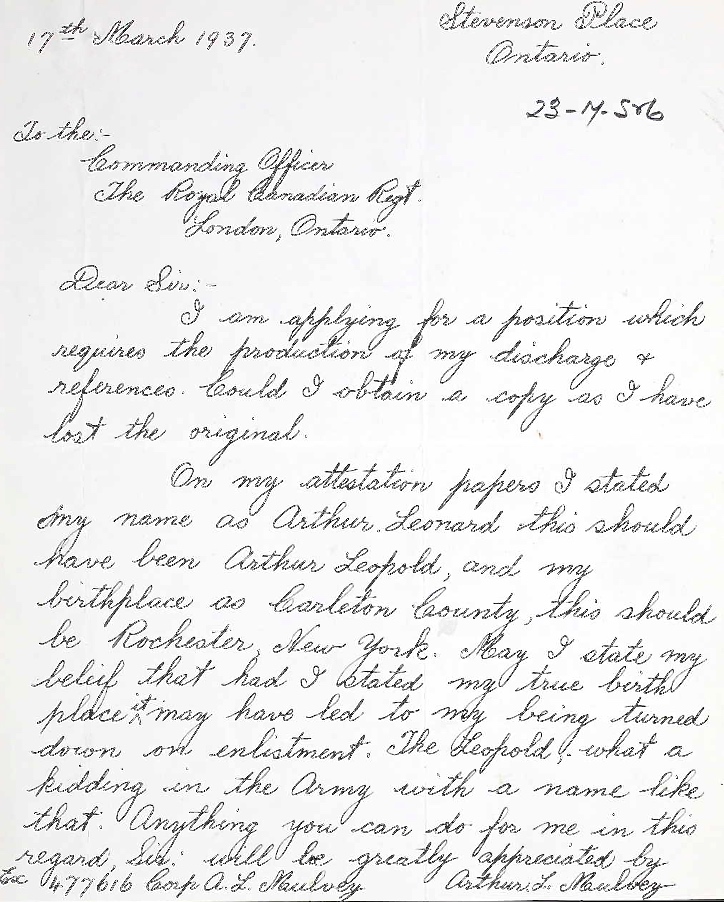 Stevenson Place
17th March 1937.
Ontario.
23-M-526
To the:-
Commanding Officer
The Royal Canadian Regt.
London, Ontario.
Dear Sir:-
I am applying for a position which
requires the production of my discharge &
references. Could I obtain a copy as I have
lost the original.
On my attestation papers I stated
my name as Arthur Leonard this should
have been Arthur Leopold, and my
birthplace as Carleton County, this should
be Rochester, New York. May I state my
belief that had I stated my true birth
place it may have led to my being turned
down on enlistment. The Leopold, what a
kidding in the Army with a name like
that. Anything you can do for me in this
regard, Sir: will be greatly appreciated by
Ex 477616 Corp A. L. Maulvey Arthur L. Maulvey